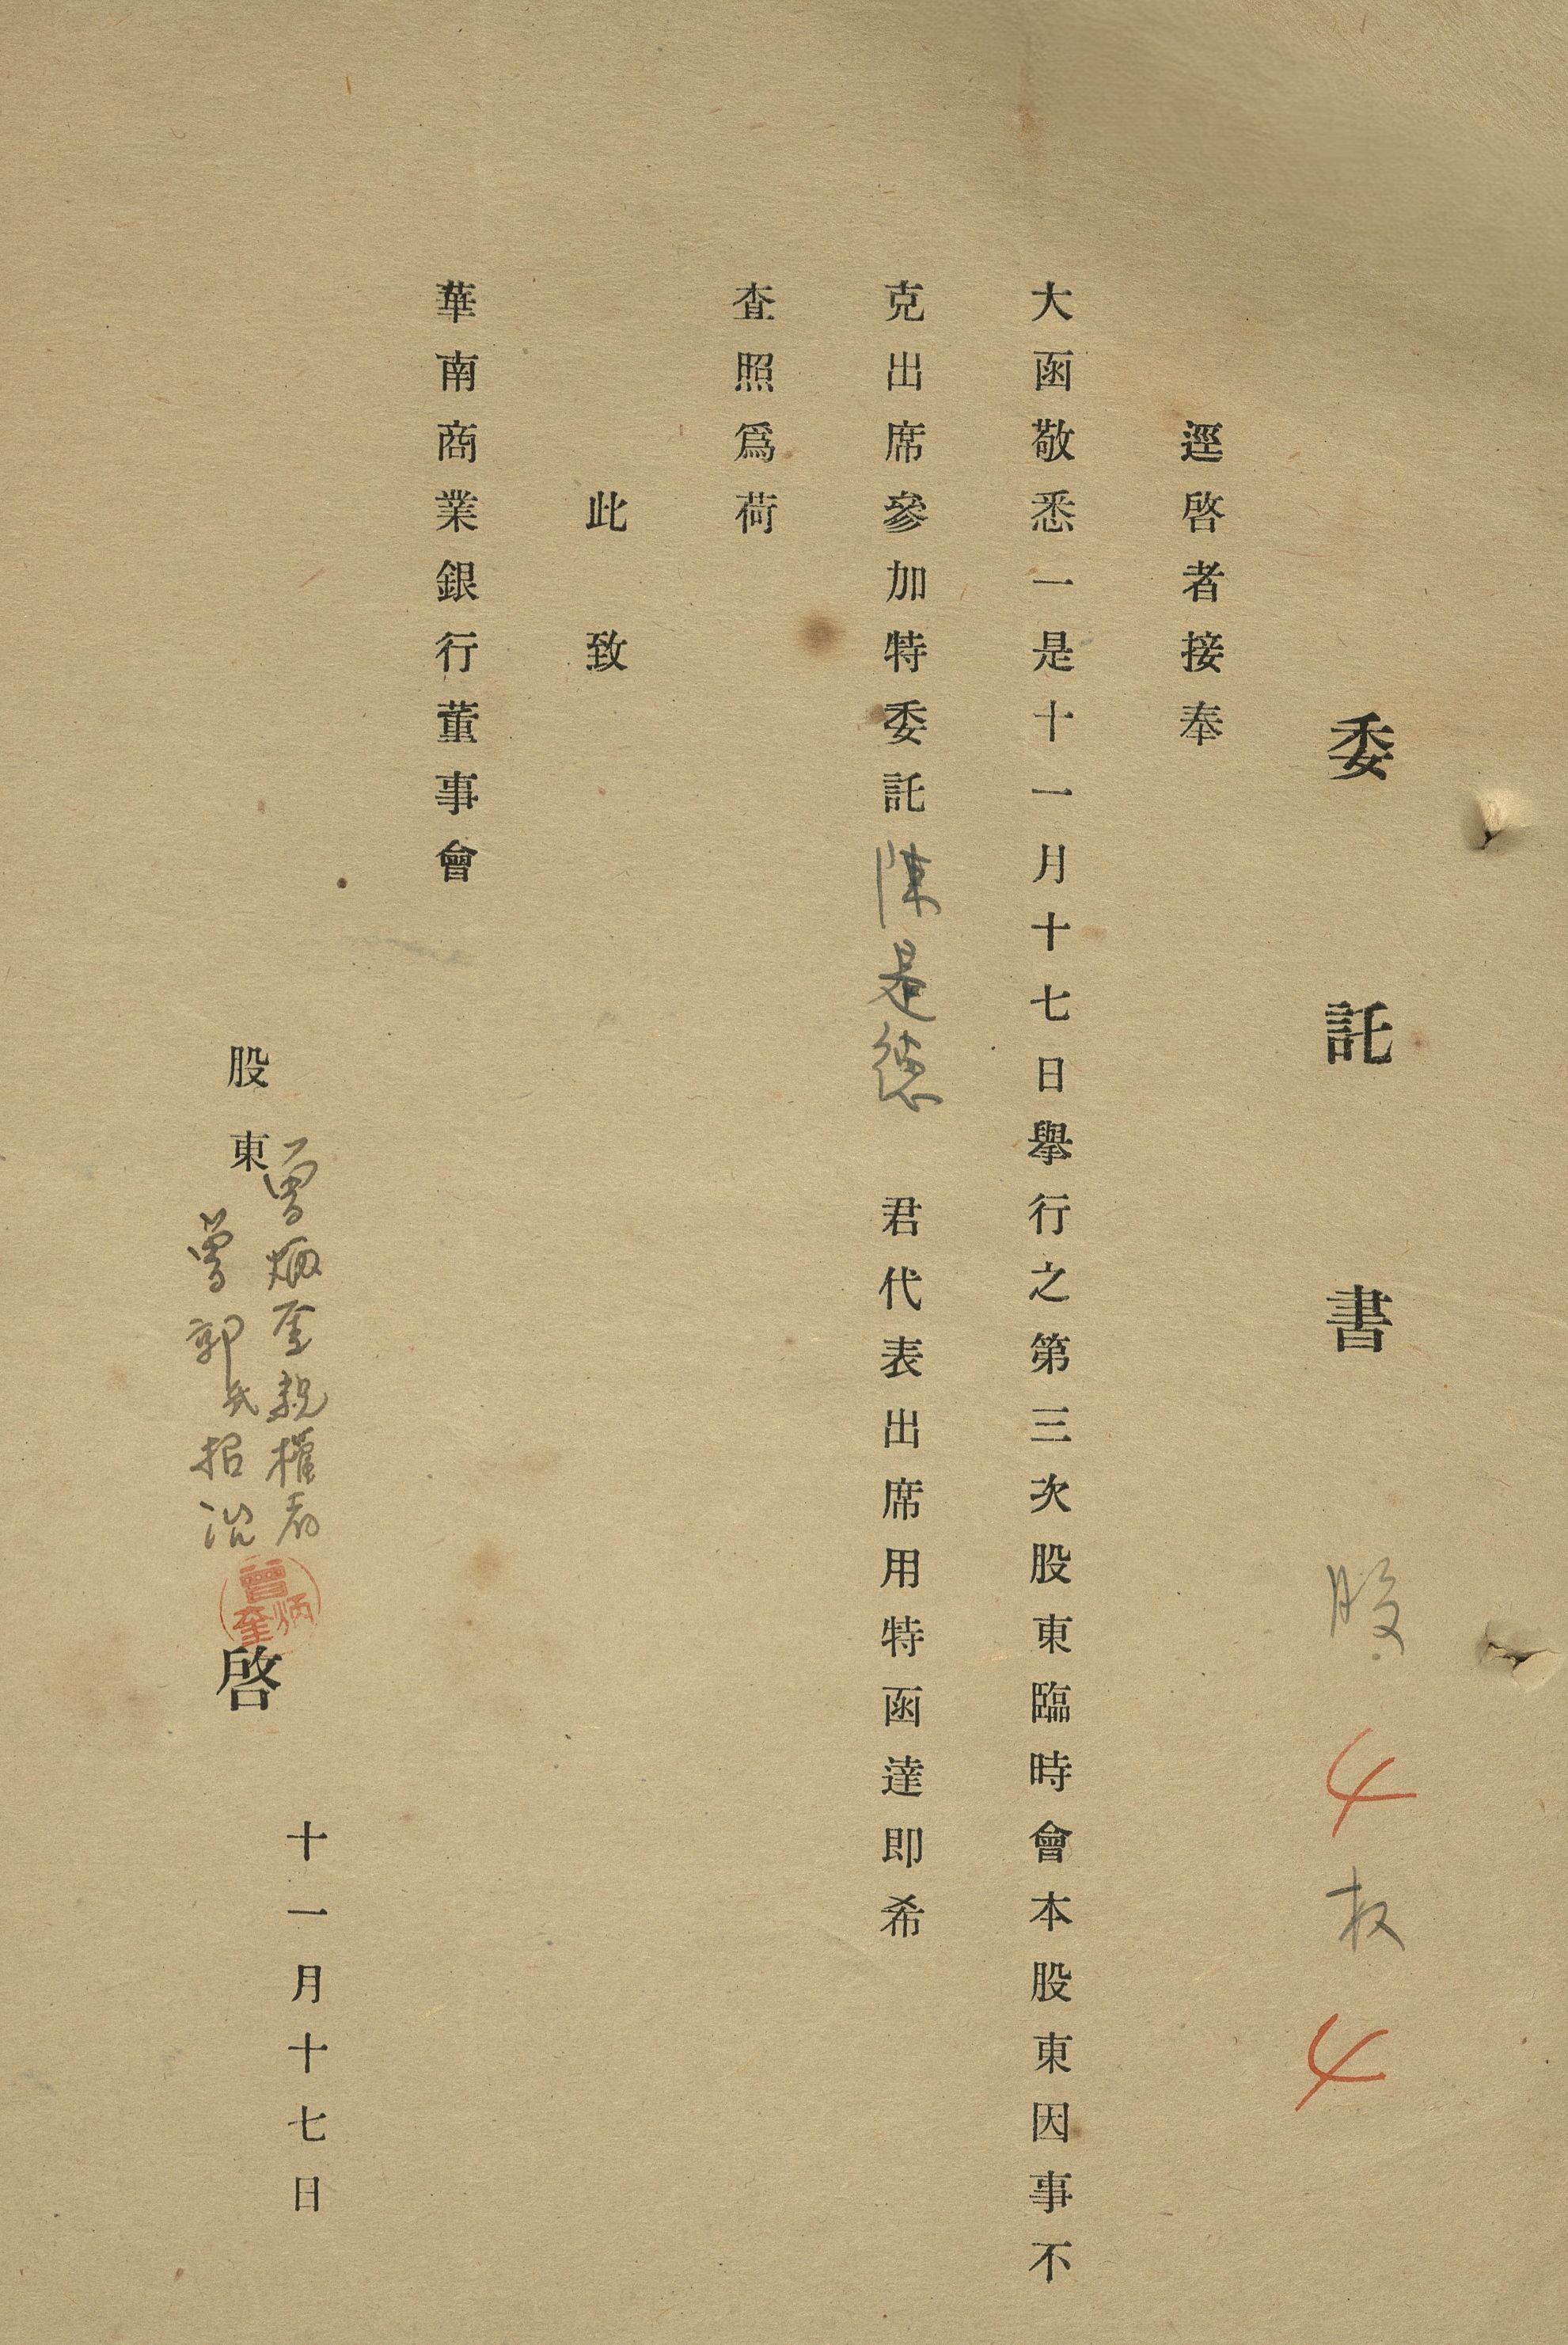 委託書
股 4 权 4
逕啓者接奉
大函敬悉一是十一月十七日舉行之第三次股東臨時會本股東因事不
克出席參加特委託陳是德 君代表出席用特函達即希
查照爲荷
此致
華南商業銀行董事會
十一月十七日
股東 曾炳奎親權者
曾郭氏招治
啓
曾炳奎